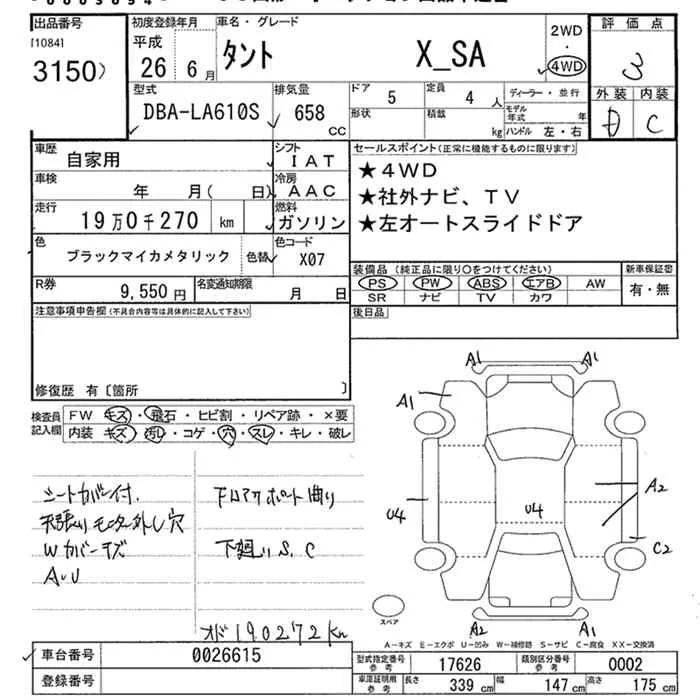 出品番号
[1084]
3150
初度登録年月
平成
26 6月
車名・グレード
タント X_SA
2WD
・
4WD
評価点
3
外装 内装
D C
型式
DBA-LA610S
排気量
658
CC
ドア
5
定員
4 人
形状
積載
kg
ディーラー・並行
モデル年式 年
ハンドル 左・右
車歴
自家用
シフト
IAT
車検
年 月( 日)
冷房
AAC
走行
19万0千270 km
燃料
ガソリン
色
ブラックマイカメタリック
色替
色コード
X07
R券
9,550 円
名変通知期限
月 日
セールスポイント(正常に機能するものに限ります)
★4WD
★社外ナビ、TV
★左オートスライドドア
装備品(純正品に限り○をつけてください)
PS PW ABS エアB AW
SR ナビ TV カワ
新車保証書
有・無
後日品
注意事項申告欄(不具合内容等は具体的に記入して下さい)
修復歴 有〔箇所 〕
検査員記入欄
FW キズ・飛石・ヒビ割・リペア跡・×要
内装 キズ・汚れ・コゲ・穴・スレ・キレ・破レ
シートカバー付.
天張りモニター外し穴
Wカバーキズ
A・U
下廻りS、C
オド190272Km
A1 A1
A1
A2
U4 U4
C2
A2 A1
スペア
A-キズ E-エクボ U-凹み W-補修跡 S-サビ C-腐食 XX-交換済
車台番号
0026615
登録番号
型式指定番号
参考
17626
類別区分番号
参考
0002
車庫証明用
参考
長さ 339 cm 幅 147 cm 高さ 175 cm